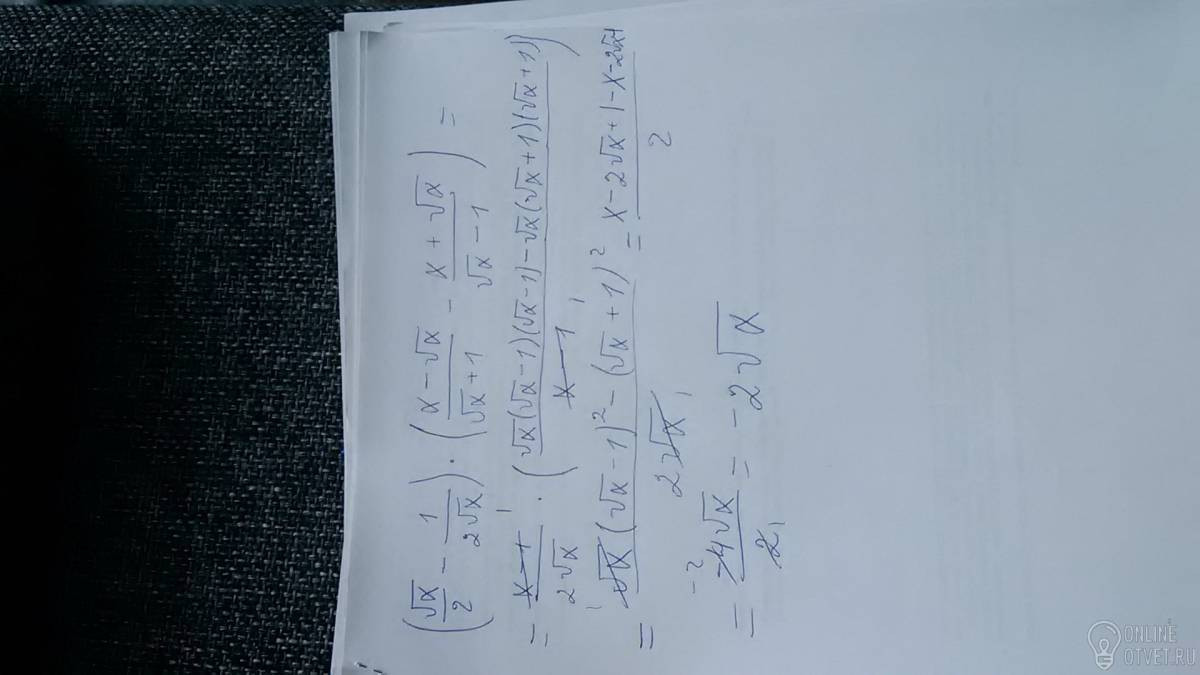 (√x/2 − 1/(2√x)) · ((x − √x)/(√x + 1) − (x + √x)/(√x − 1)) =
= (x − 1)/(2√x) · ((√x(√x − 1)(√x − 1) − √x(√x + 1)(√x + 1))/(x − 1))
= (√x(√x − 1)² − (√x + 1)²)/(2√x) = (x − 2√x + 1 − x − 2√x − 1)/2
= −4√x/2 = −2√x
ONLINE
OTVET.RU